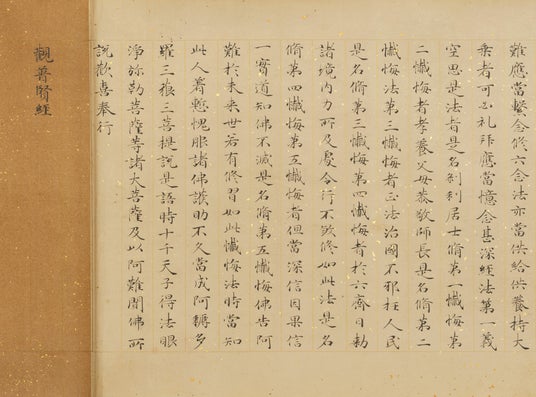 難應當繫念修六念法亦當供給供養持大
乘者可必礼拜應當憶念甚深經法第一義
空思是法者是名剎利居士脩第一懺悔第
二懺悔者孝養父母恭敬師長是名脩第二
懺悔法第三懺悔者正法治國不邪枉人民
是名脩第三懺悔第四懺悔者於六齋日勅
諸境內力所及處令行不煞修如此法是名
脩第四懺悔第五懺悔者但當深信因果信
一實道知佛不滅是名脩第五懺悔佛告阿
難於未來世若有修習如此懺悔法時當知
此人著慙愧服諸佛護助不久當成阿耨多
羅三藐三菩提說是語時十千天子得法眼
淨弥勒菩薩等諸大菩薩及以阿難聞佛所
說歡喜奉行
觀普賢經